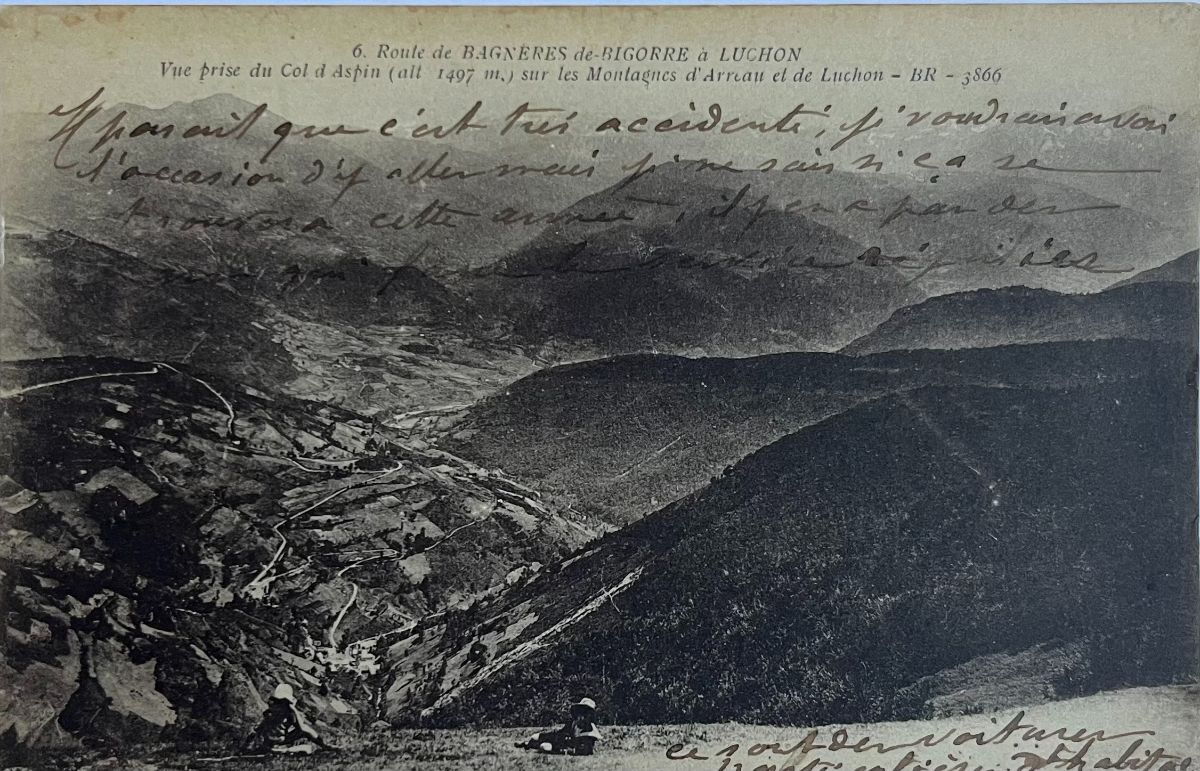 6. Route de BAGNÈRES-de-BIGORRE à LUCHON
Vue prise du Col d'Aspin (alt 1497 m.) sur les Montagnes d'Arreau et de Luchon - BR - 3866
Il parait que c'est très accidenté, j'voudrais avoir
l'occasion d'y aller mais je ne sais si ça se
trouvera cette année, il y en a par des
qui de service régulier
ce sont des voitures